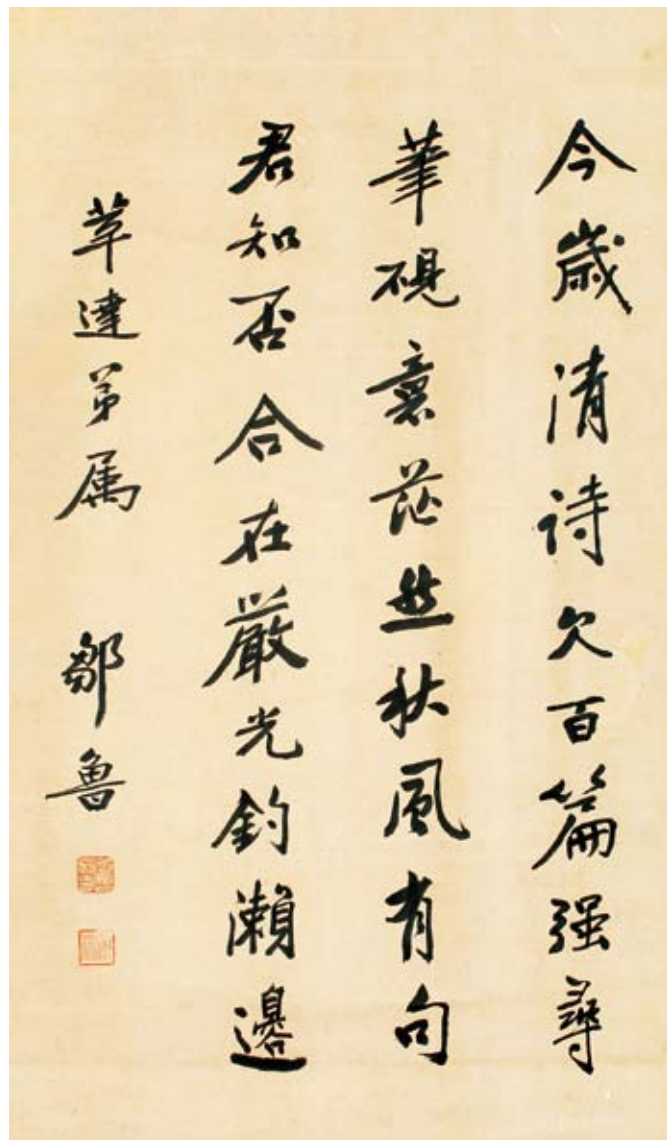 今歲清詩欠百篇强尋
筆硯意茫然秋風有句
君知否合在嚴光釣瀨邊
達弟属
鄒魯